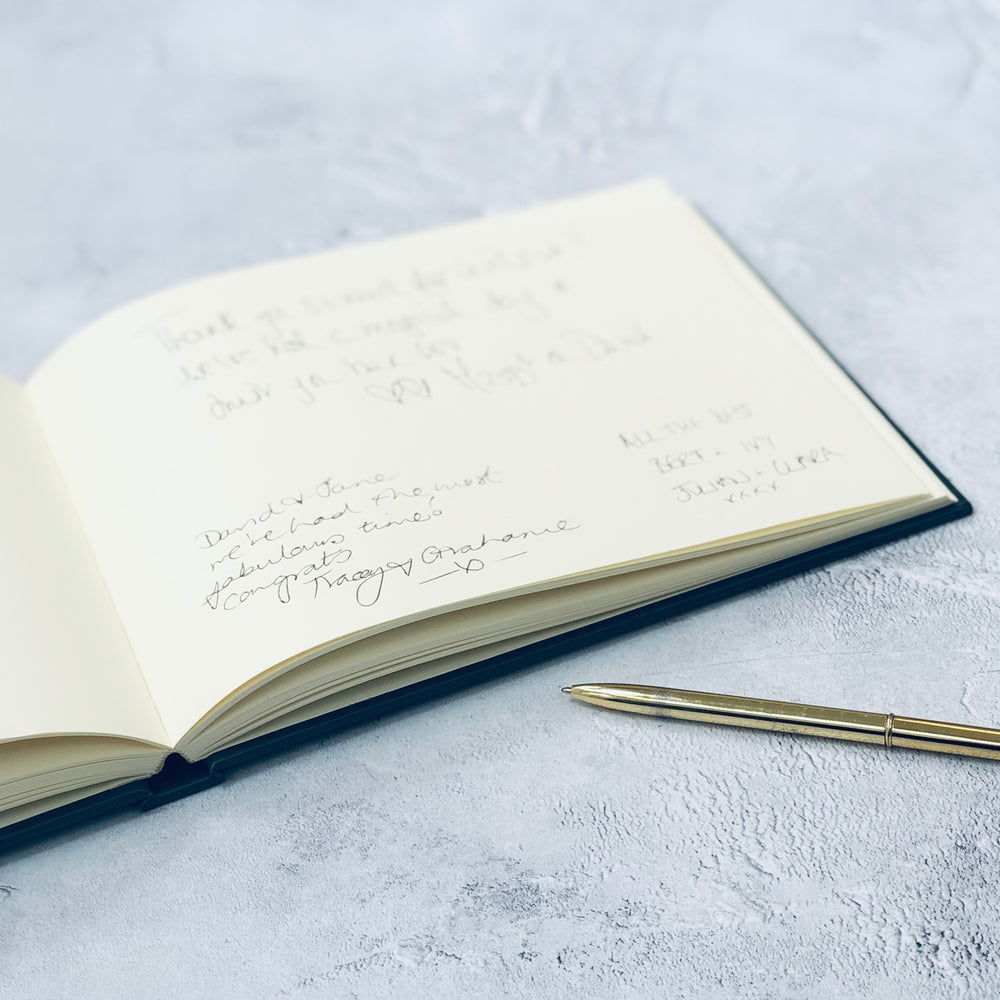 Thank you so much for inviting us
we've had a magical day &
you have
ALL THE BEST
BERT + IVY
JULIAN + CLARA
xxxx
David & Jane
we've had the most
fabulous time!
congrats
Tracey & Grahame
x